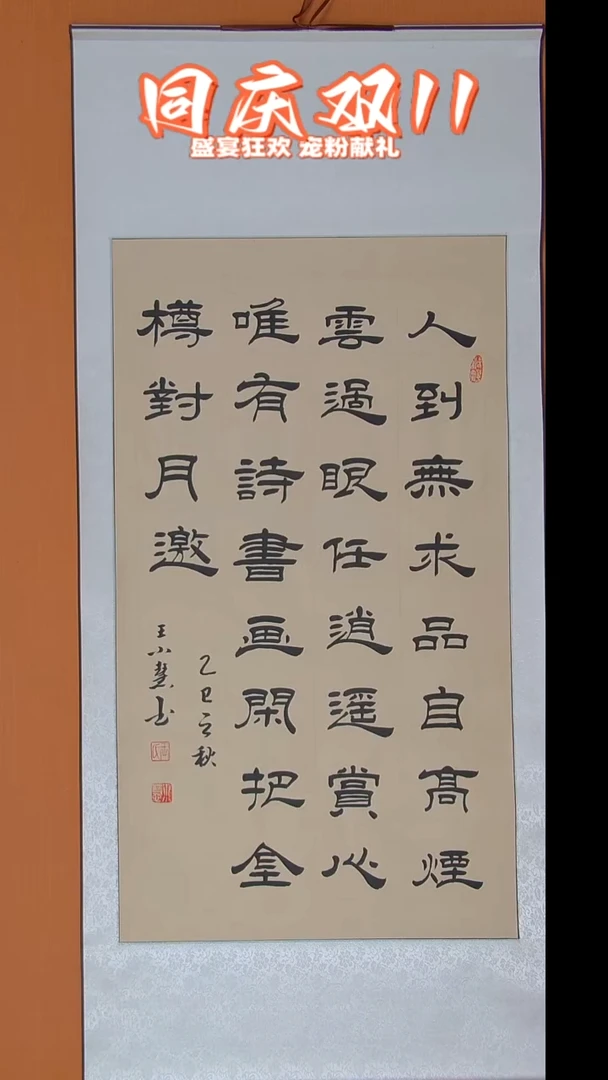 同庆双11
盛宴狂欢 宠粉献礼
人到無求品自高煙
雲過眼任逍遥賞心
唯有詩書画閑把金
樽對月邀
乙巳之秋
王小慧书